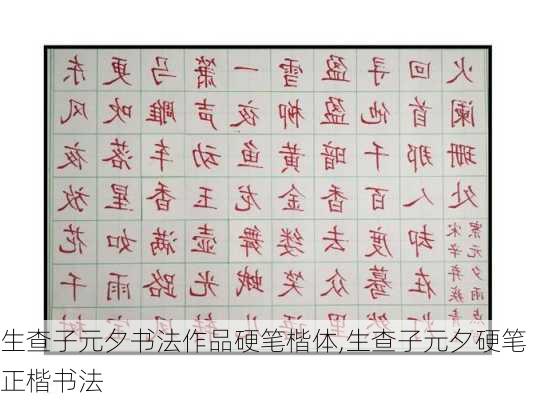 东风夜放花千树
更吹落星如雨宝
马雕车香满路凤
箫声动玉壶光转
一夜鱼龙舞蛾儿
雪柳黄金缕笑语
盈盈暗香去众里
寻他千百度蓦然
回首那人却在灯
火阑珊处
生查子元夕书法作品硬笔楷体,生查子元夕硬笔
正楷书法